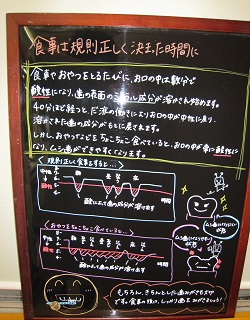 食事は規則正しく決まった時間に
食事やおやつをとるたびに、お口の中は数分で
酸性になり、歯の表面のミネラル成分が溶けだし始めます。
40分ほど経つと、だ液の働きによりお口の中が中性に戻り、
溶けだした歯の成分がもとに戻されます。
しかし、おやつなどをちょこちょこ食べていると、お口の中が常に酸性に
なり、ムシ歯ができやすくなります。
〈規則正しく食事をすると…〉
中性
酸性
酸によって歯の成分が溶けます
時間
〈おやつをちょこちょこ食べていると…〉
中性
酸性
酸によって歯の成分が溶けます
時間
もちろん、きちんとした歯みがきも大切
です。食事の後は、しっかり歯をみがきましょう!